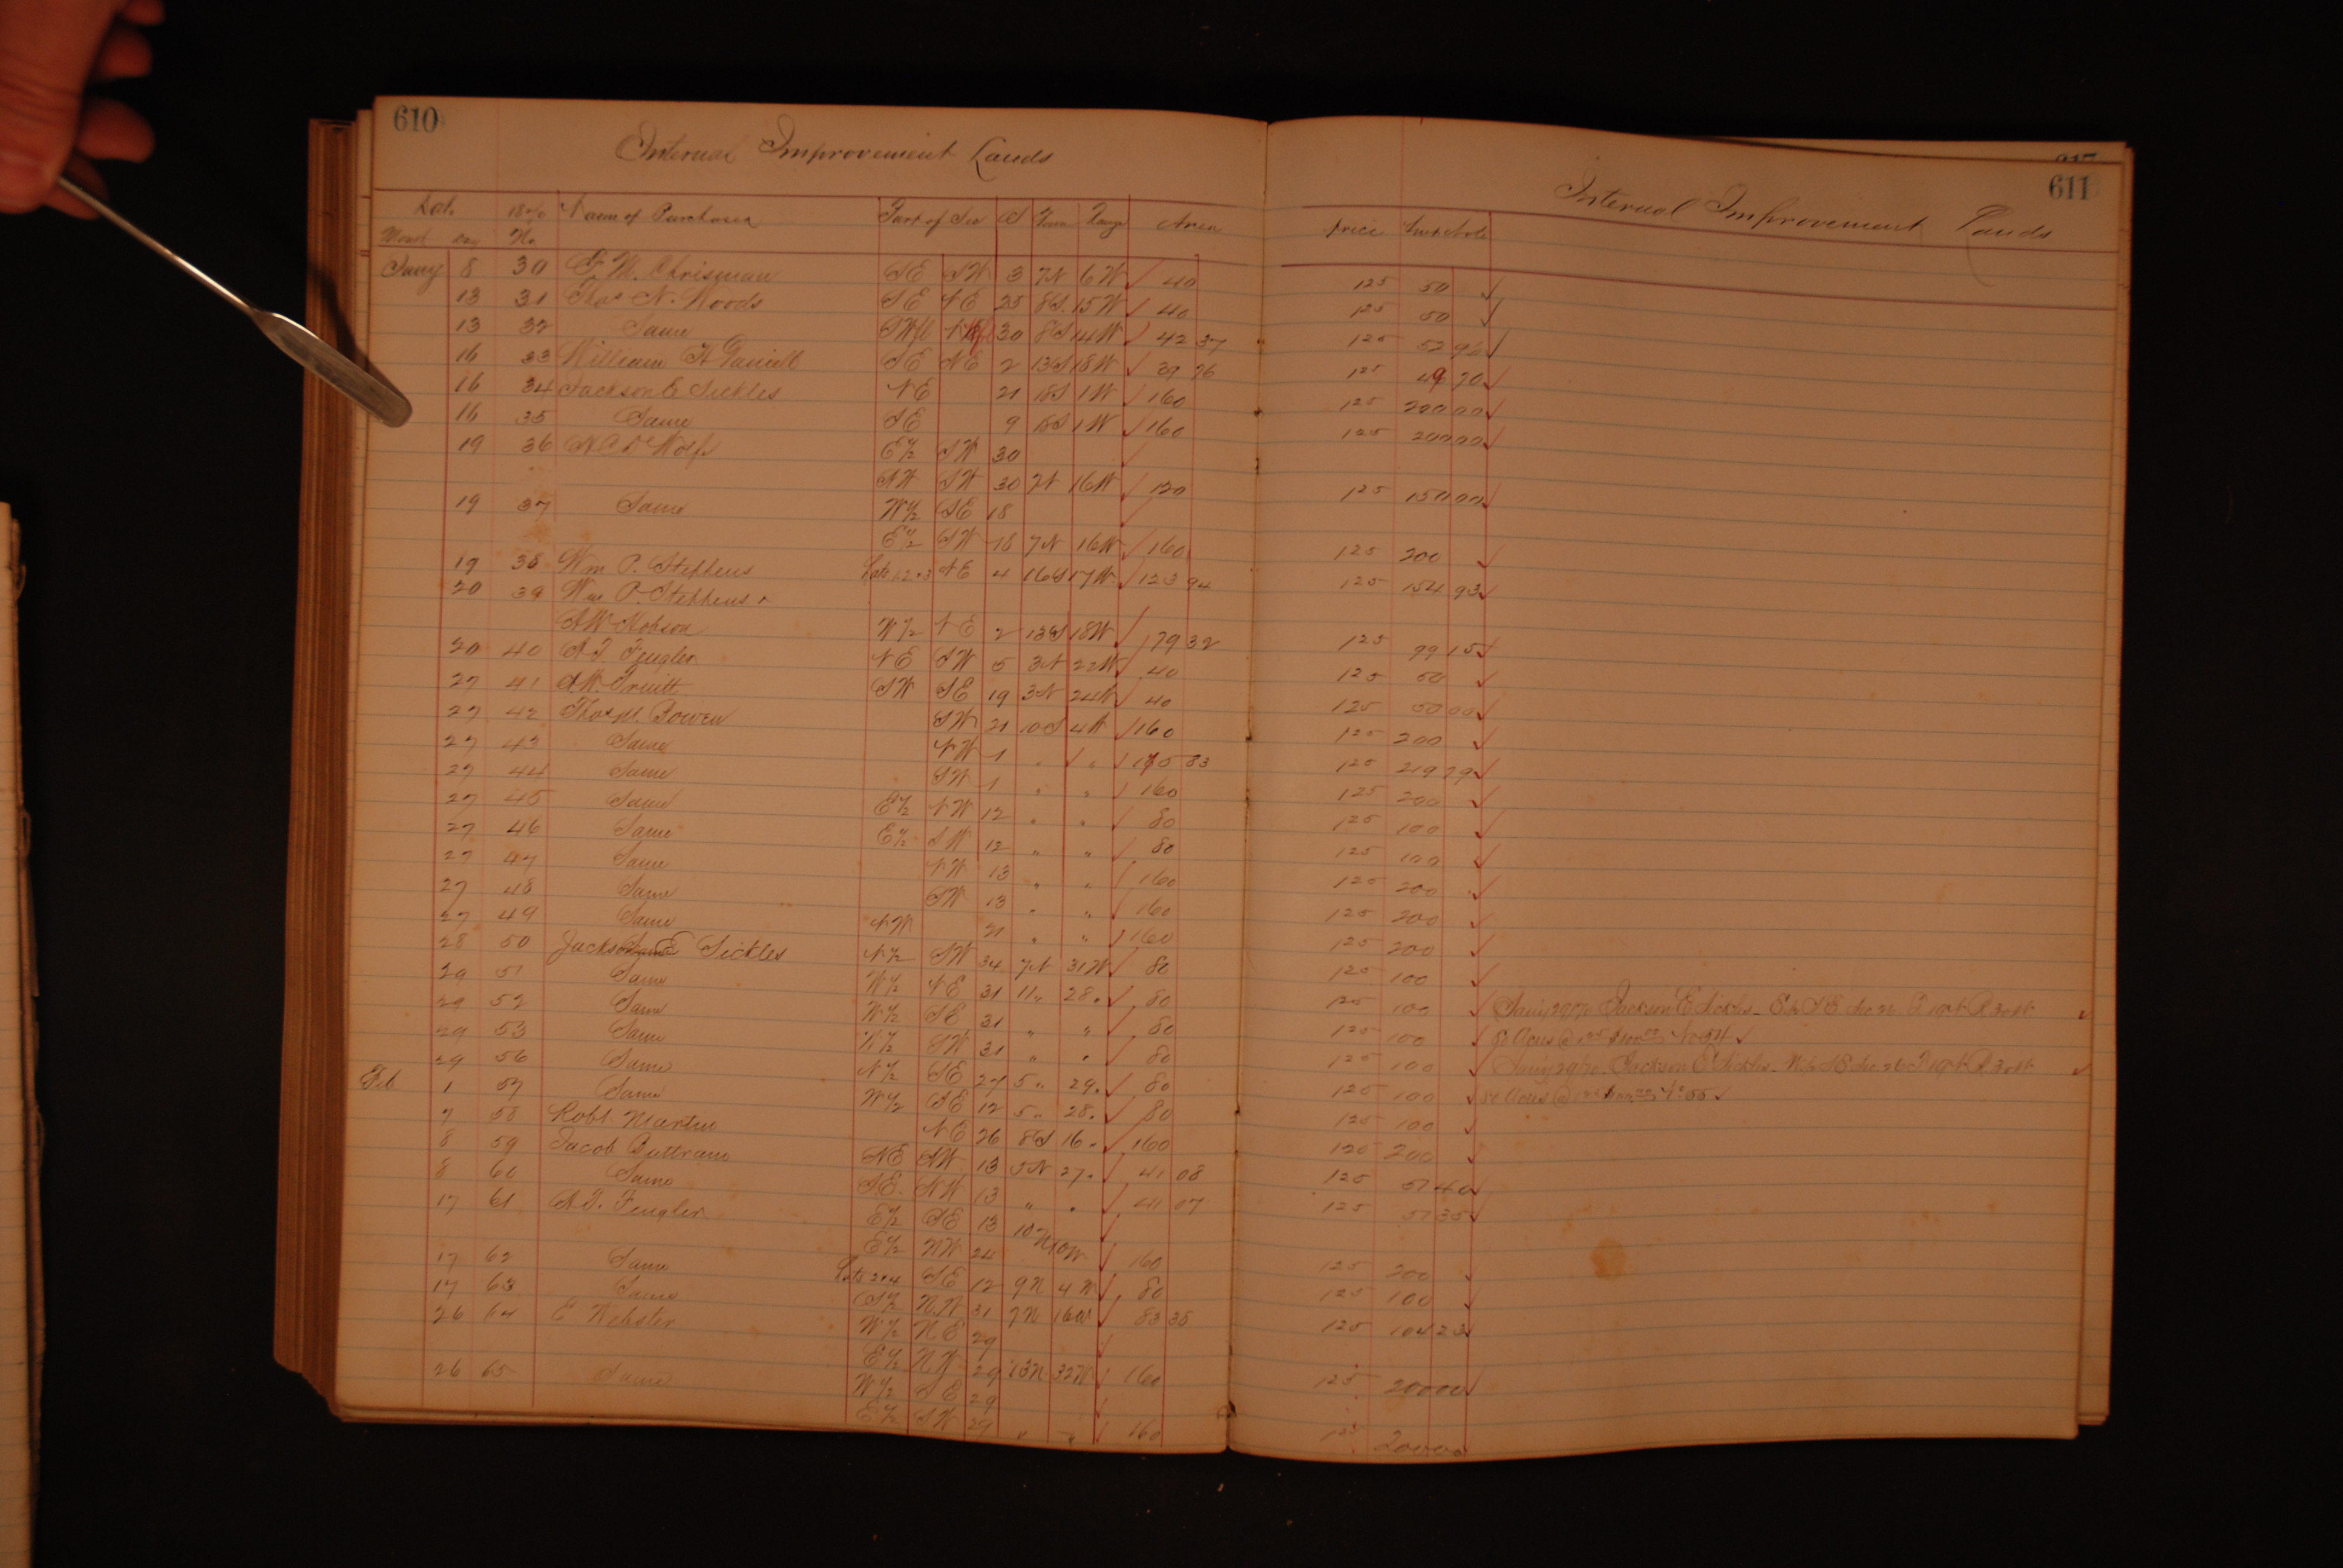 610
Internal Improvement Lands
Date 1870 Name of Purchaser Part of Sec S Town Range Area
Month Day No.
Jany 8 30 F. M. Chrisman SE SW 3 7N 6W 40
13 31 Thos N. Woods SE NE 25 8S. 15W 40
13 32 Same SWfl 30 8S 14W 42 37
16 33 William H SE NE 2 13S 18W 39 76
16 34 Jackson E Sickles NE 21 18S 1W 160
16 35 Same SE 9 18S 1W 160
19 36 DeWolf E½ SW 30
NW SW 30 7N 16W 120
19 37 Same W½ SE 18
E½ SW 18 7N 16W 160
19 38 Wm P. Stephens Lots 1.2.+3 NE 4 16S 17W. 123 94
20 39 Wm P. Stephens +
Hobson W½ NE 2 13S 18W 79 32
20 40 Fengler NE SW 5 3N 22W 40
27 41 Pruitt SW SE 19 3N 24W 40
27 42 Thos M. Bowen SW 21 10S 4W 160
27 43 Same NW 1 " " 175 83
27 44 Same SW 1 " " 160
27 45 Same E½ NW 12 " " 80
27 46 Same E½ SW 12 " " 80
27 47 Same NW 13 " " 160
27 48 Same SW 13 " " 160
27 49 Same NW 21 " " 160
28 50 Jackson E Sickles N½ SW 34 7N 31W 80
29 51 Same W½ NE 31 11" 28" 80
29 52 Same W½ SE 31 " " 80
29 53 Same W½ SW 31 " " 80
29 56 Same N½ SE 27 5" 29" 80
Feb 1 57 Same W½ SE 12 5" 28" 80
7 58 Robt. Martin NE 26 8S 16" 160
8 59 Jacob Buttram NE NW 13 27" 41 08
8 60 Same SE. NW 13 " " 41 07
17 61 Fengler E½ SE 13 10N 10W
E½ NW 24 160
17 62 Same Lots 2+4 SE 12 9N 4W 80
17 63 Same S½ N.W 31 7N 16W 83 38
26 64 E Webster W½ NE 29
E½ NW 29 13N 32W 160
26 65 Same W½ SE 29
E½ SW 29 " " 160
611
Internal Improvement Lands
Price
125 50
125 50
125 52 96
125 49 70
125 200 00
125 200 00
125 150 00
125 200
125 154 93
125 99 15
125 50
125 50 00
125 200
125 219 79
125 200
125 100
125 100
125 200
125 200
125 200
125 100
125 100 Jany 29/70 Jackson E Sickles - E½ SE Sec 26 T 19N R 30W
125 100 80 Acres @ 125 $100.00 No 54
125 100 Jany 29/70. Jackson E Sickles - W½ SE Sec 26 T 19N R 30W
125 100 80 Acres @ 125 $100.00 No 55
125 100
125 200
125 51 40
125 51 35
125 200
125 100
125 104 23
125 200 00
125 200 00